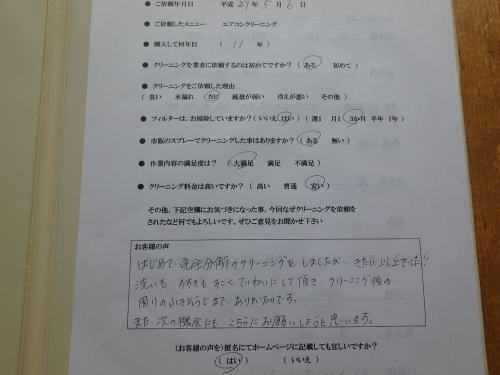 ● ご依頼年月日 平成 27年 5月 6日
● ご依頼したメニュー エアコンクリーニング
● 購入して何年目 ( 11 年 )
● クリーニングを業者に依頼するのは初めてですか? ( ある 初めて )
● クリーニングをご依頼した理由
( 臭い 水漏れ カビ 風量が弱い 冷えが悪い その他 )
● フィルターは、お掃除していますか?( いいえ はい ) ( 週1 月1 3か月 半年 1年 )
● 市販のスプレーでクリーニングした事はありますか? ( ある 無い )
● 作業内容の満足度は? ( 大満足 満足 不満足 )
● クリーニング料金は高いですか? ( 高い 普通 安い )
その他、下記空欄にお気づきになった事、今回なぜクリーニングを依頼を
されたなど何でもよろしいです。ぜひご意見をお聞かせ下さい
お客様の声
はじめて、完全分解のクリーニングをしましたが、きたい以上でした!!
洗いも、すすぎもすごくていねいにして頂き、クリーニング後の
周りのふきそうじまで、ありがたいです。
また、次の機会にも、こちらにお願いしようと思います。
(お客様の声)を匿名にてホームページに記載しても宜しいですか?
( はい ) ( いいえ )